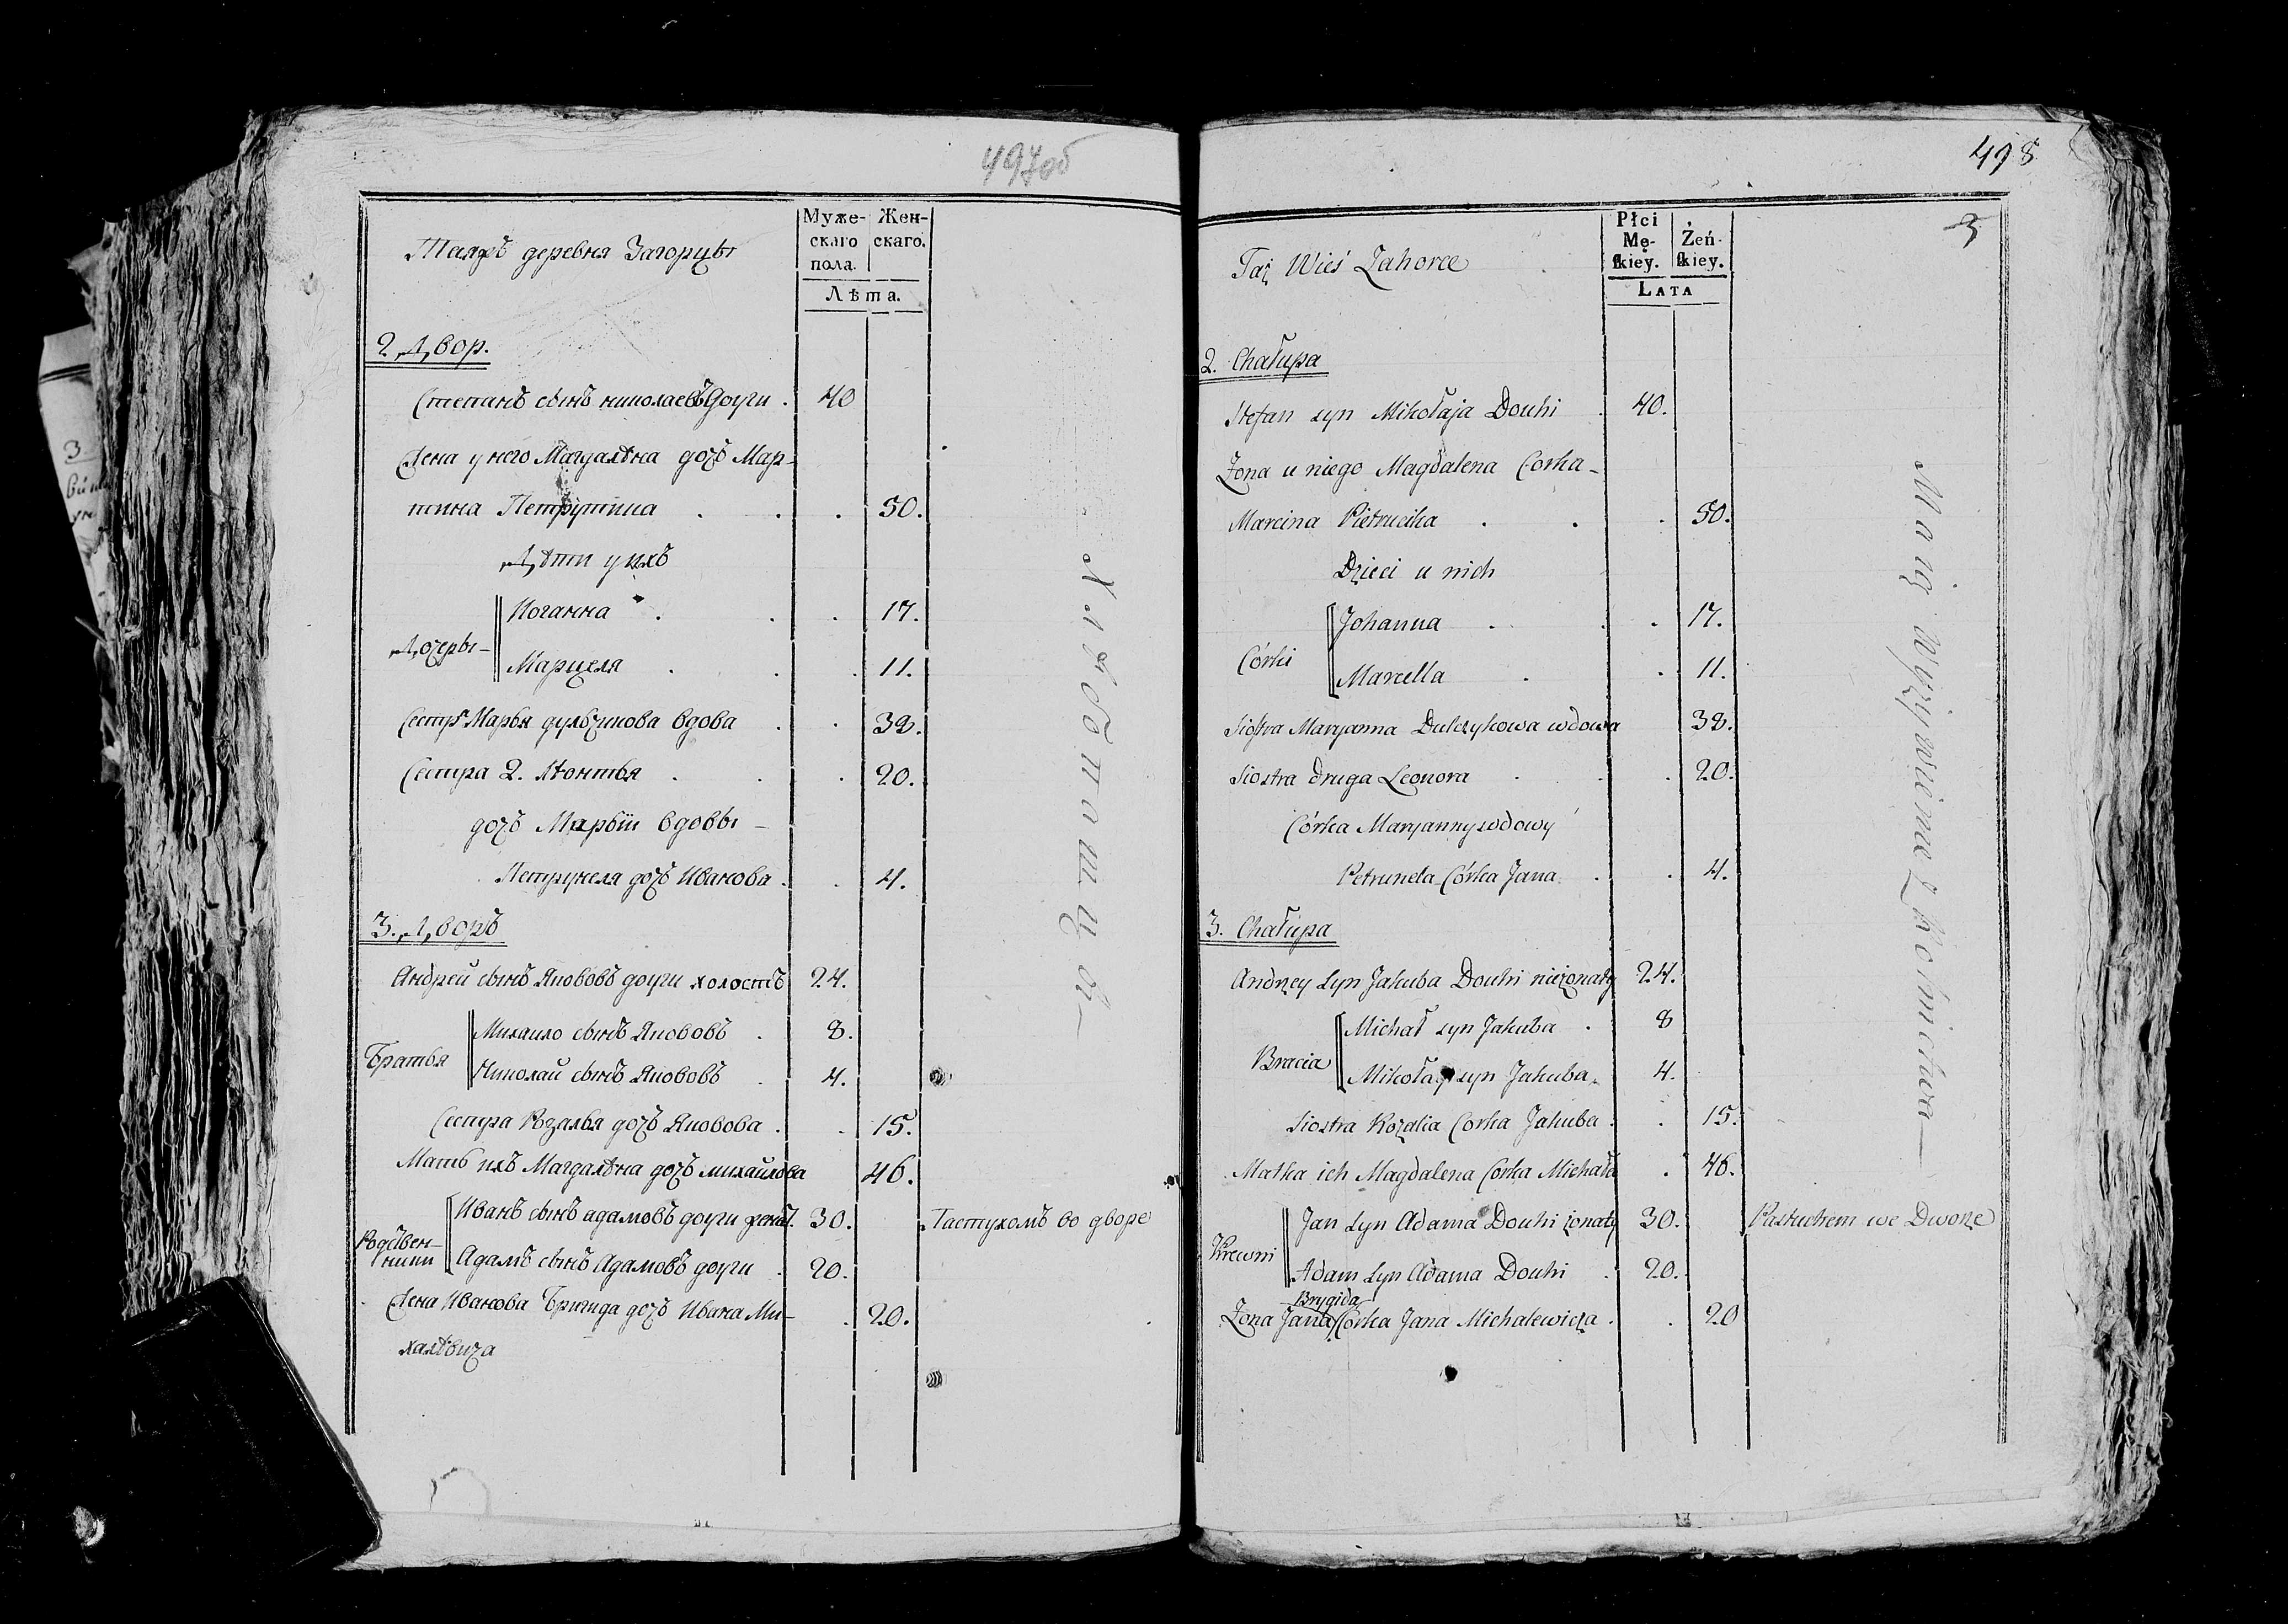 497об
Таяжъ деревня Загорцы
Муже-
скаго
пола.
Жен-
скаго.
Лѣта.
2 Двор.
Степанъ сынъ николаевъ Доуги . 40
Жена у него Магдалѣна дочь Мар-
тина Петрутика . . . 50.
Дѣти у ихъ
Дочеры-
Иоганна . . . 17.
Марцеля . . . 11.
Сестра Марья дульчикова вдова . . 38.
Сестра 2. Лѣонтья . . . 20.
дочь Марыи вдовы -
Петрунеля дочь Иванова . . 4.
3. Дворъ
Андрей сынъ Якововъ доуги холостъ 24.
Братья
Михаило сынъ Якововъ . 8.
Николай сынъ Якововъ . 4.
Сестра Розалья дочь Яковова . . 15.
Мать ихъ Магдалѣна дочь михайлова 46.
Родствен-
ники
Иванъ сынъ адамовъ доуги женат. 30. Пастухомъ во дворе
Адамъ сынъ Адамовъ доуги . 20.
Жена Иванова Бригида дочь Ивана Ми- . 20.
халѣвича
498
3
Taż Wieś Zahorce
Płci
Mę-
skiey.
Żeń-
skiey.
LATA
2. Chałupa
Stefan syn Mikołaja Douhi . 40.
Żona u niego Magdalena Corka-
Marcina Pietrucika . . . 50.
Dzieci u nich
Córki
Johanna . . . 17.
Marcella . . 11.
Siostra Maryanna Dulczykowa wdowa 38.
Siostra druga Leonora . . . 20.
Córka Maryanny wdowy
Petrunela Córka Jana . . 4.
3. Chałupa
Andrzey Syn Jakuba Douhi nieżonaty 24.
Bracia
Michał syn Jakuba . 8
Mikołay syn Jakuba. 4.
Siostra Rozalia Corka Jakuba . . 15.
Matka ich Magdalena Corka Michała . 46.
Krewni
Jan Syn Adama Douhi żonaty 30. Pastuchem we Dworze
Adam Syn Adama Douhi . 20.
Brygida
Żona Jana Córka Jana Michalewicza . . 20
Maią Wyżywienie z Rolnictwa —